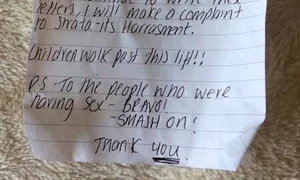 letters, I will make a complaint
to strata-its Harrasment.
Children walk past this lift!!
P.S - To the people who were
having sex - BRAVO!
- SMASH on!
Thank you.